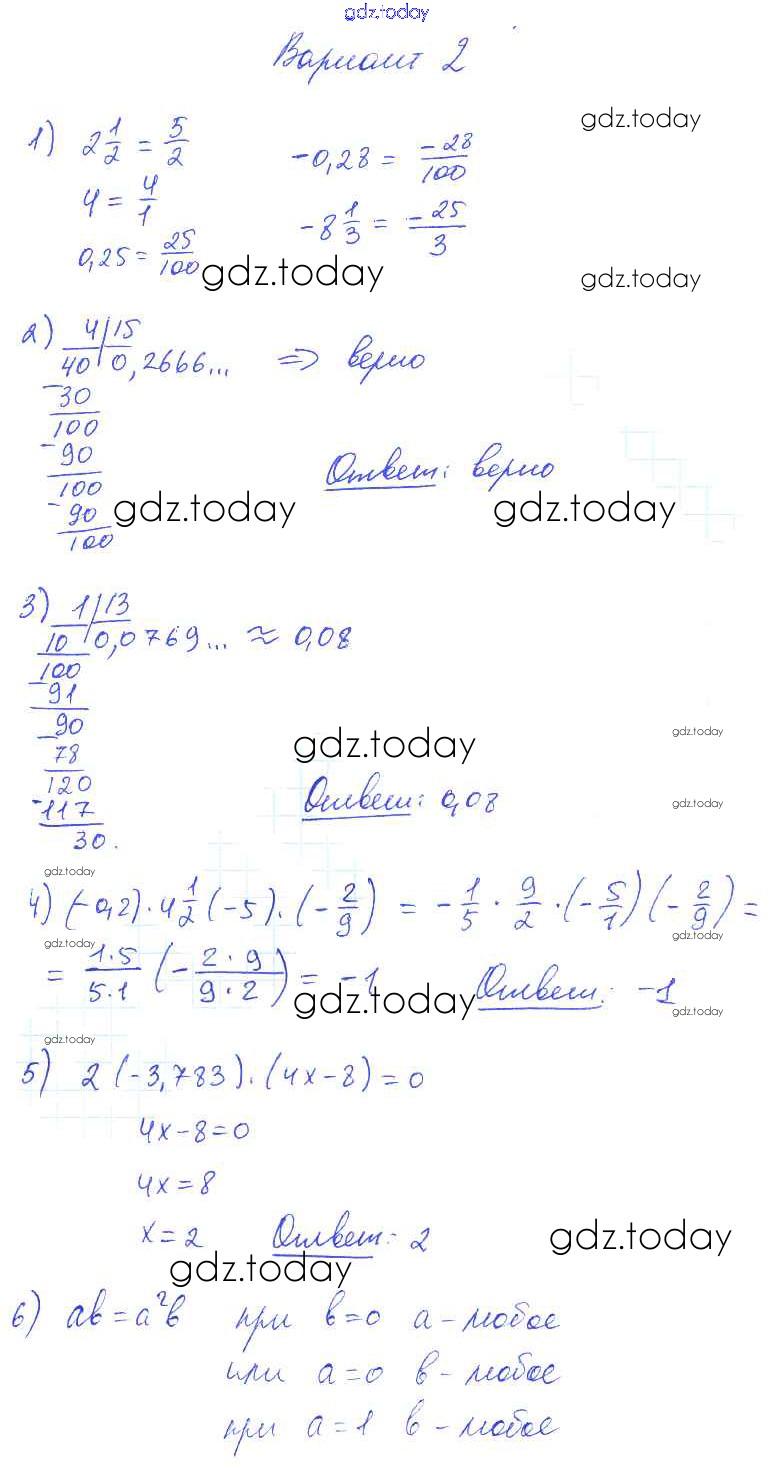 gdz.today
Вариант 2
gdz.today
1) 2 1/2 = 5/2   -0,28 = -28/100
4 = 4/1   -8 1/3 = -25/3
0,25 = 25/100 gdz.today gdz.today
2) 4 | 15
40 | 0,2666... => верно
-30
100
-90
100   Ответ: верно
-90 gdz.today gdz.today
100
3) 1 | 13
10 | 0,0769... ≈ 0,08
100
-91
90 gdz.today gdz.today
-78
120   Ответ: 0,08 gdz.today
-117
30.
gdz.today
4) (-0,2) · 4 1/2 (-5) · (-2/9) = -1/5 · 9/2 · (-5/1) (-2/9) =
gdz.today gdz.today
= 1·5/5·1 (-2·9/9·2) = -1   Ответ: -1
gdz.today gdz.today
gdz.today
5) 2 (-3,783) · (4x-8) = 0
4x-8=0
4x=8
x=2   Ответ: 2 gdz.today
gdz.today
6) ab = a²b   при b=0 a - любое
или a=0 b - любое
при a=1 b - любое